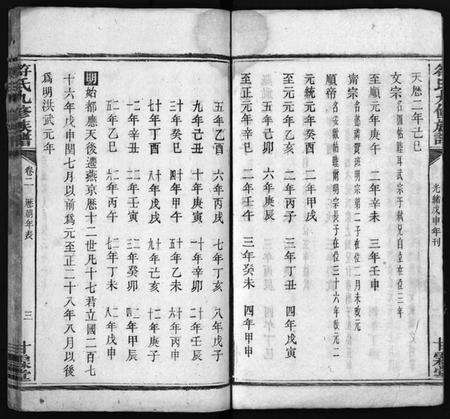 符氏九修族譜
光緒戊申年刊
天曆二年己巳
文宗 名圖帖睦耳武宗子弒兄自立在位三年
至順元年庚午 二年辛未 三年壬申
甯宗 名懿璘質班明宗第二子在位二月未改元
順帝 名妥歡帖睦爾明宗長子在位三十六年改元二
元統元年癸酉 二年甲戌
至元元年乙亥 二年丙子 三年丁丑 四年戊寅
五年己卯 六年庚辰
至正元年辛巳 二年壬午 三年癸未 四年甲申
五年乙酉 六年丙戌 七年丁亥 八年戊子
九年己丑 十年庚寅 十一年辛卯 十二年壬辰
十三年癸巳 十四年甲午 十五年乙未 十六年丙申
十七年丁酉 十八年戊戌 十九年己亥 二十年庚子
二十一年辛丑 二十二年壬寅 二十三年癸卯 二十四年甲辰
二十五年乙巳 二十六年丙午 二十七年丁未 二十八年戊申
明 始都應天後遷燕京歷十二世凡十七君立國二百七
十六年戊申閏七月以前為元至正二十八年八月以後
為明洪武元年
符氏九修族譜
卷二 歷朝年表 三